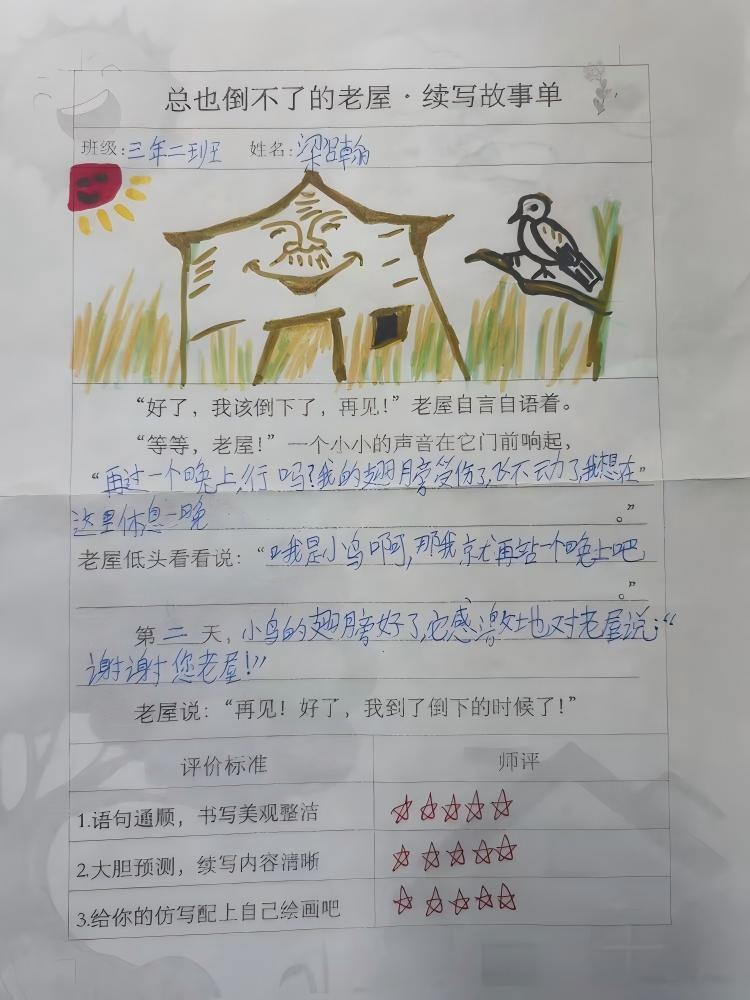 总也倒不了的老屋·续写故事单
班级:三年二班 姓名:梁吕翰
“好了，我该倒下了，再见！”老屋自言自语着。
“等等，老屋！”一个小小的声音在它门前响起，
“再过一个晚上,行吗?我的翅膀受伤了,飞不动了,我想在”
这里休息一晚 。”
老屋低头看看说：“哦是小鸟啊,那我就再站一个晚上吧
。”
第二天，小鸟的翅膀好了,它感激地对老屋说:“
谢谢您老屋!”
老屋说：“再见！好了，我到了倒下的时候了！”
评价标准 师评
1.语句通顺，书写美观整洁 ☆☆☆☆☆
2.大胆预测，续写内容清晰 ☆☆☆☆☆
3.给你的仿写配上自己绘画吧 ☆☆☆☆☆